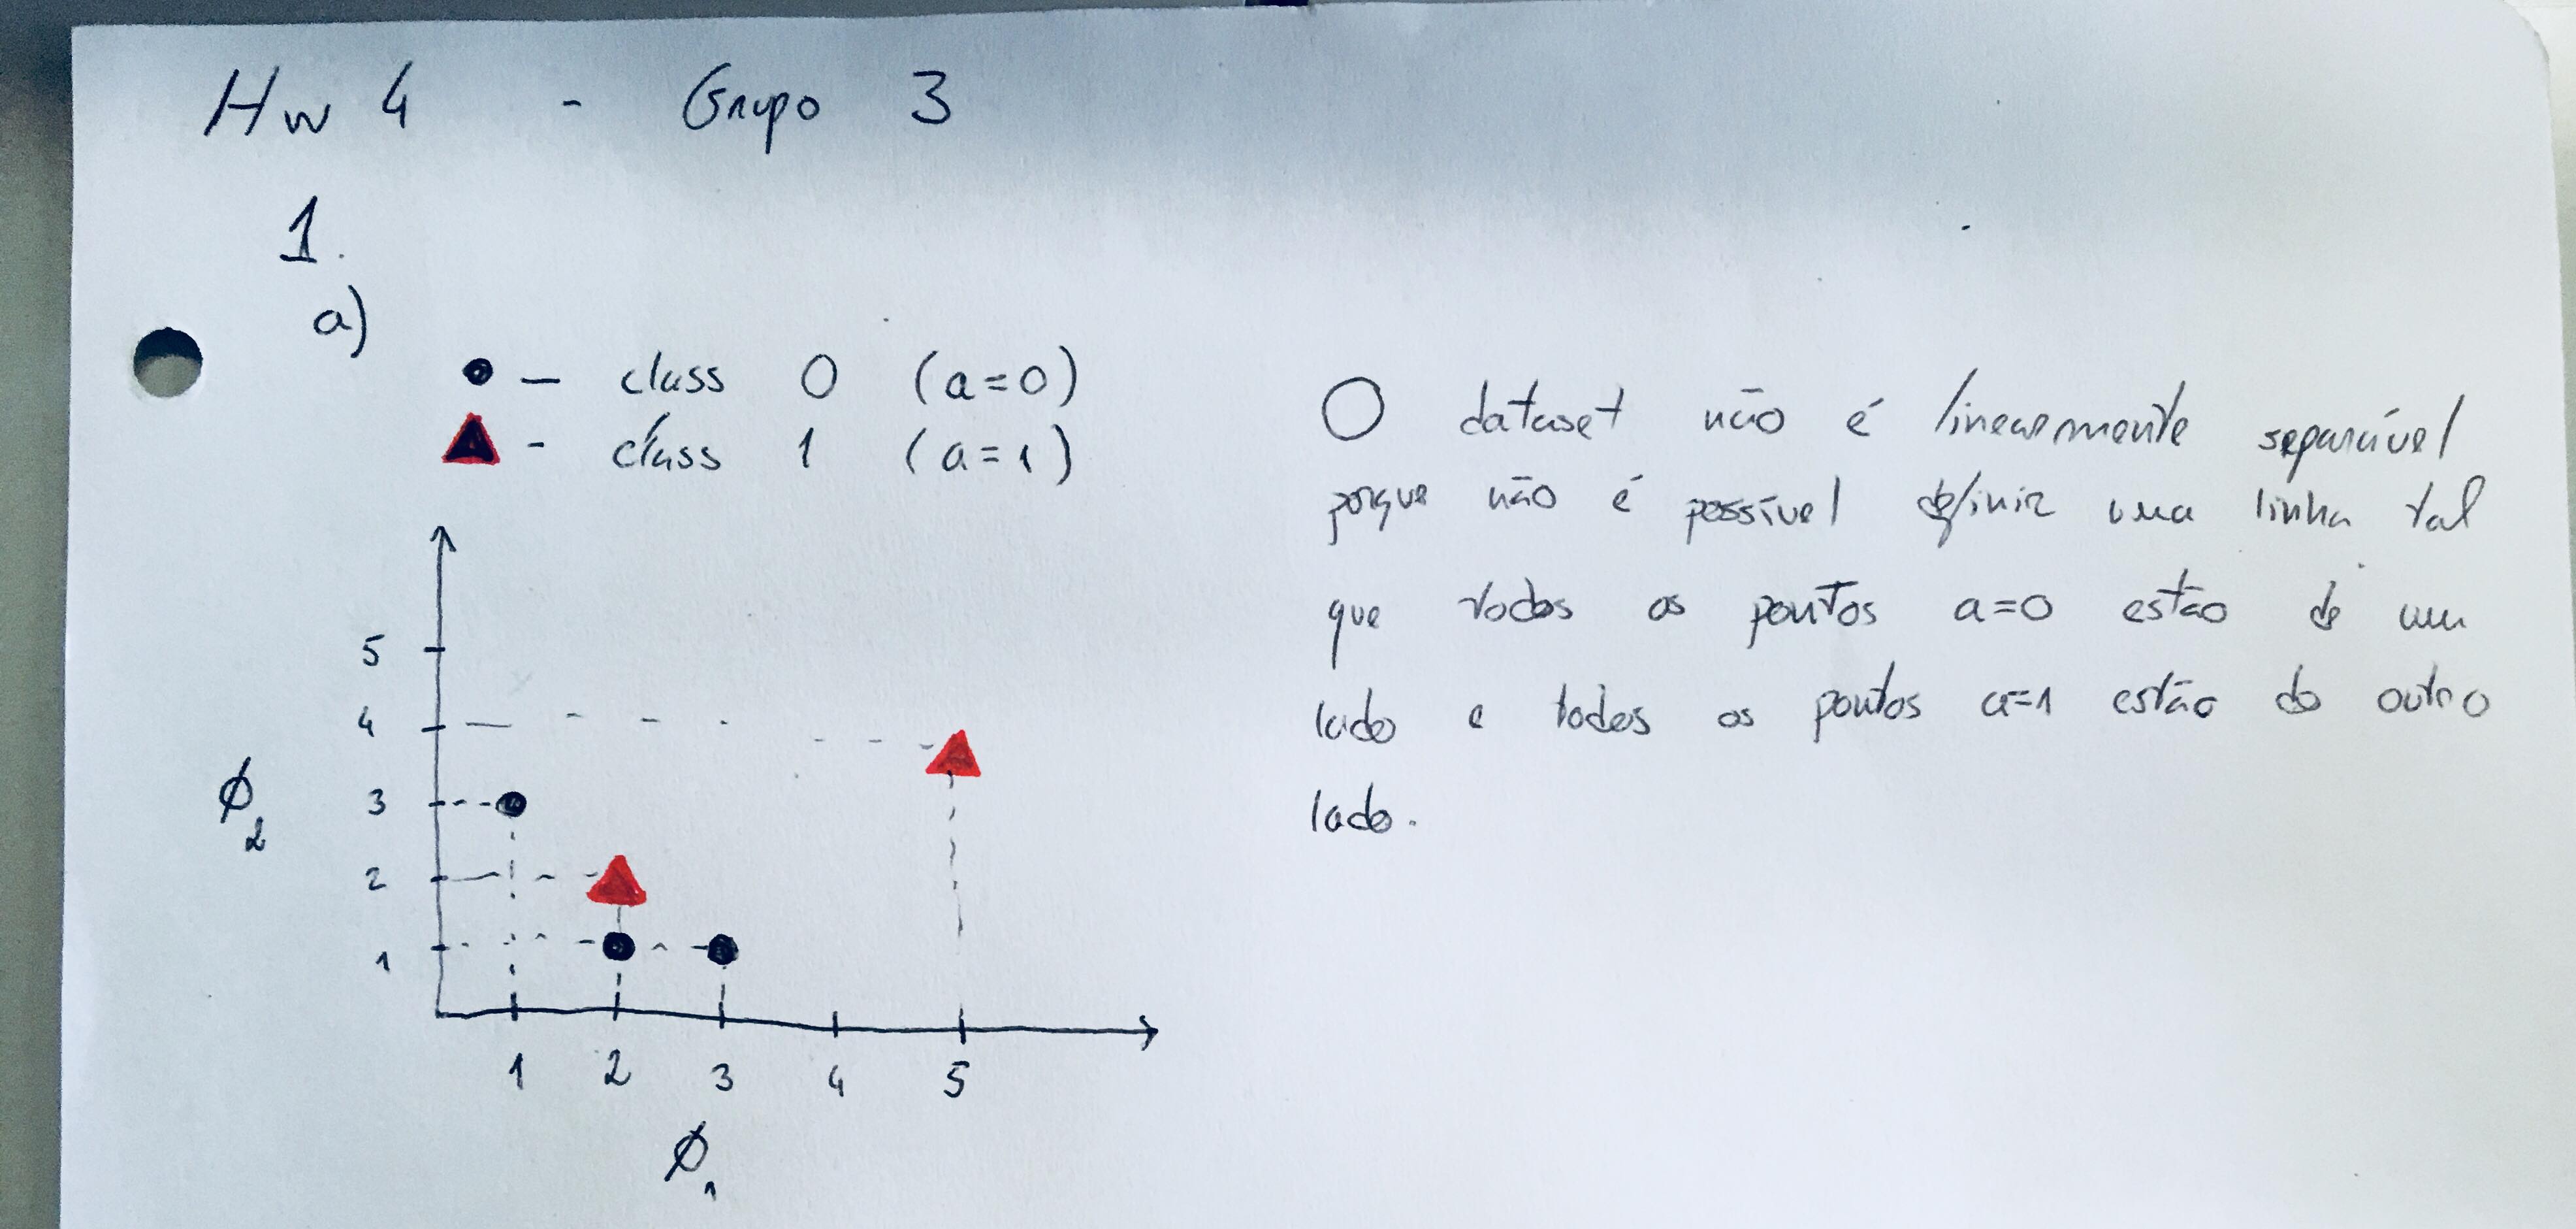 Hw 4 - Grupo 3
1.
a)
● - class 0 (a=0)
▲ - class 1 (a=1)
5
4
3
2
1
ϕ2
1 2 3 4 5
ϕ1
O dataset não é linearmente separável
porque não é possível definir uma linha tal
que todos os pontos a=0 estão de um
lado e todos os pontos a=1 estão do outro
lado.